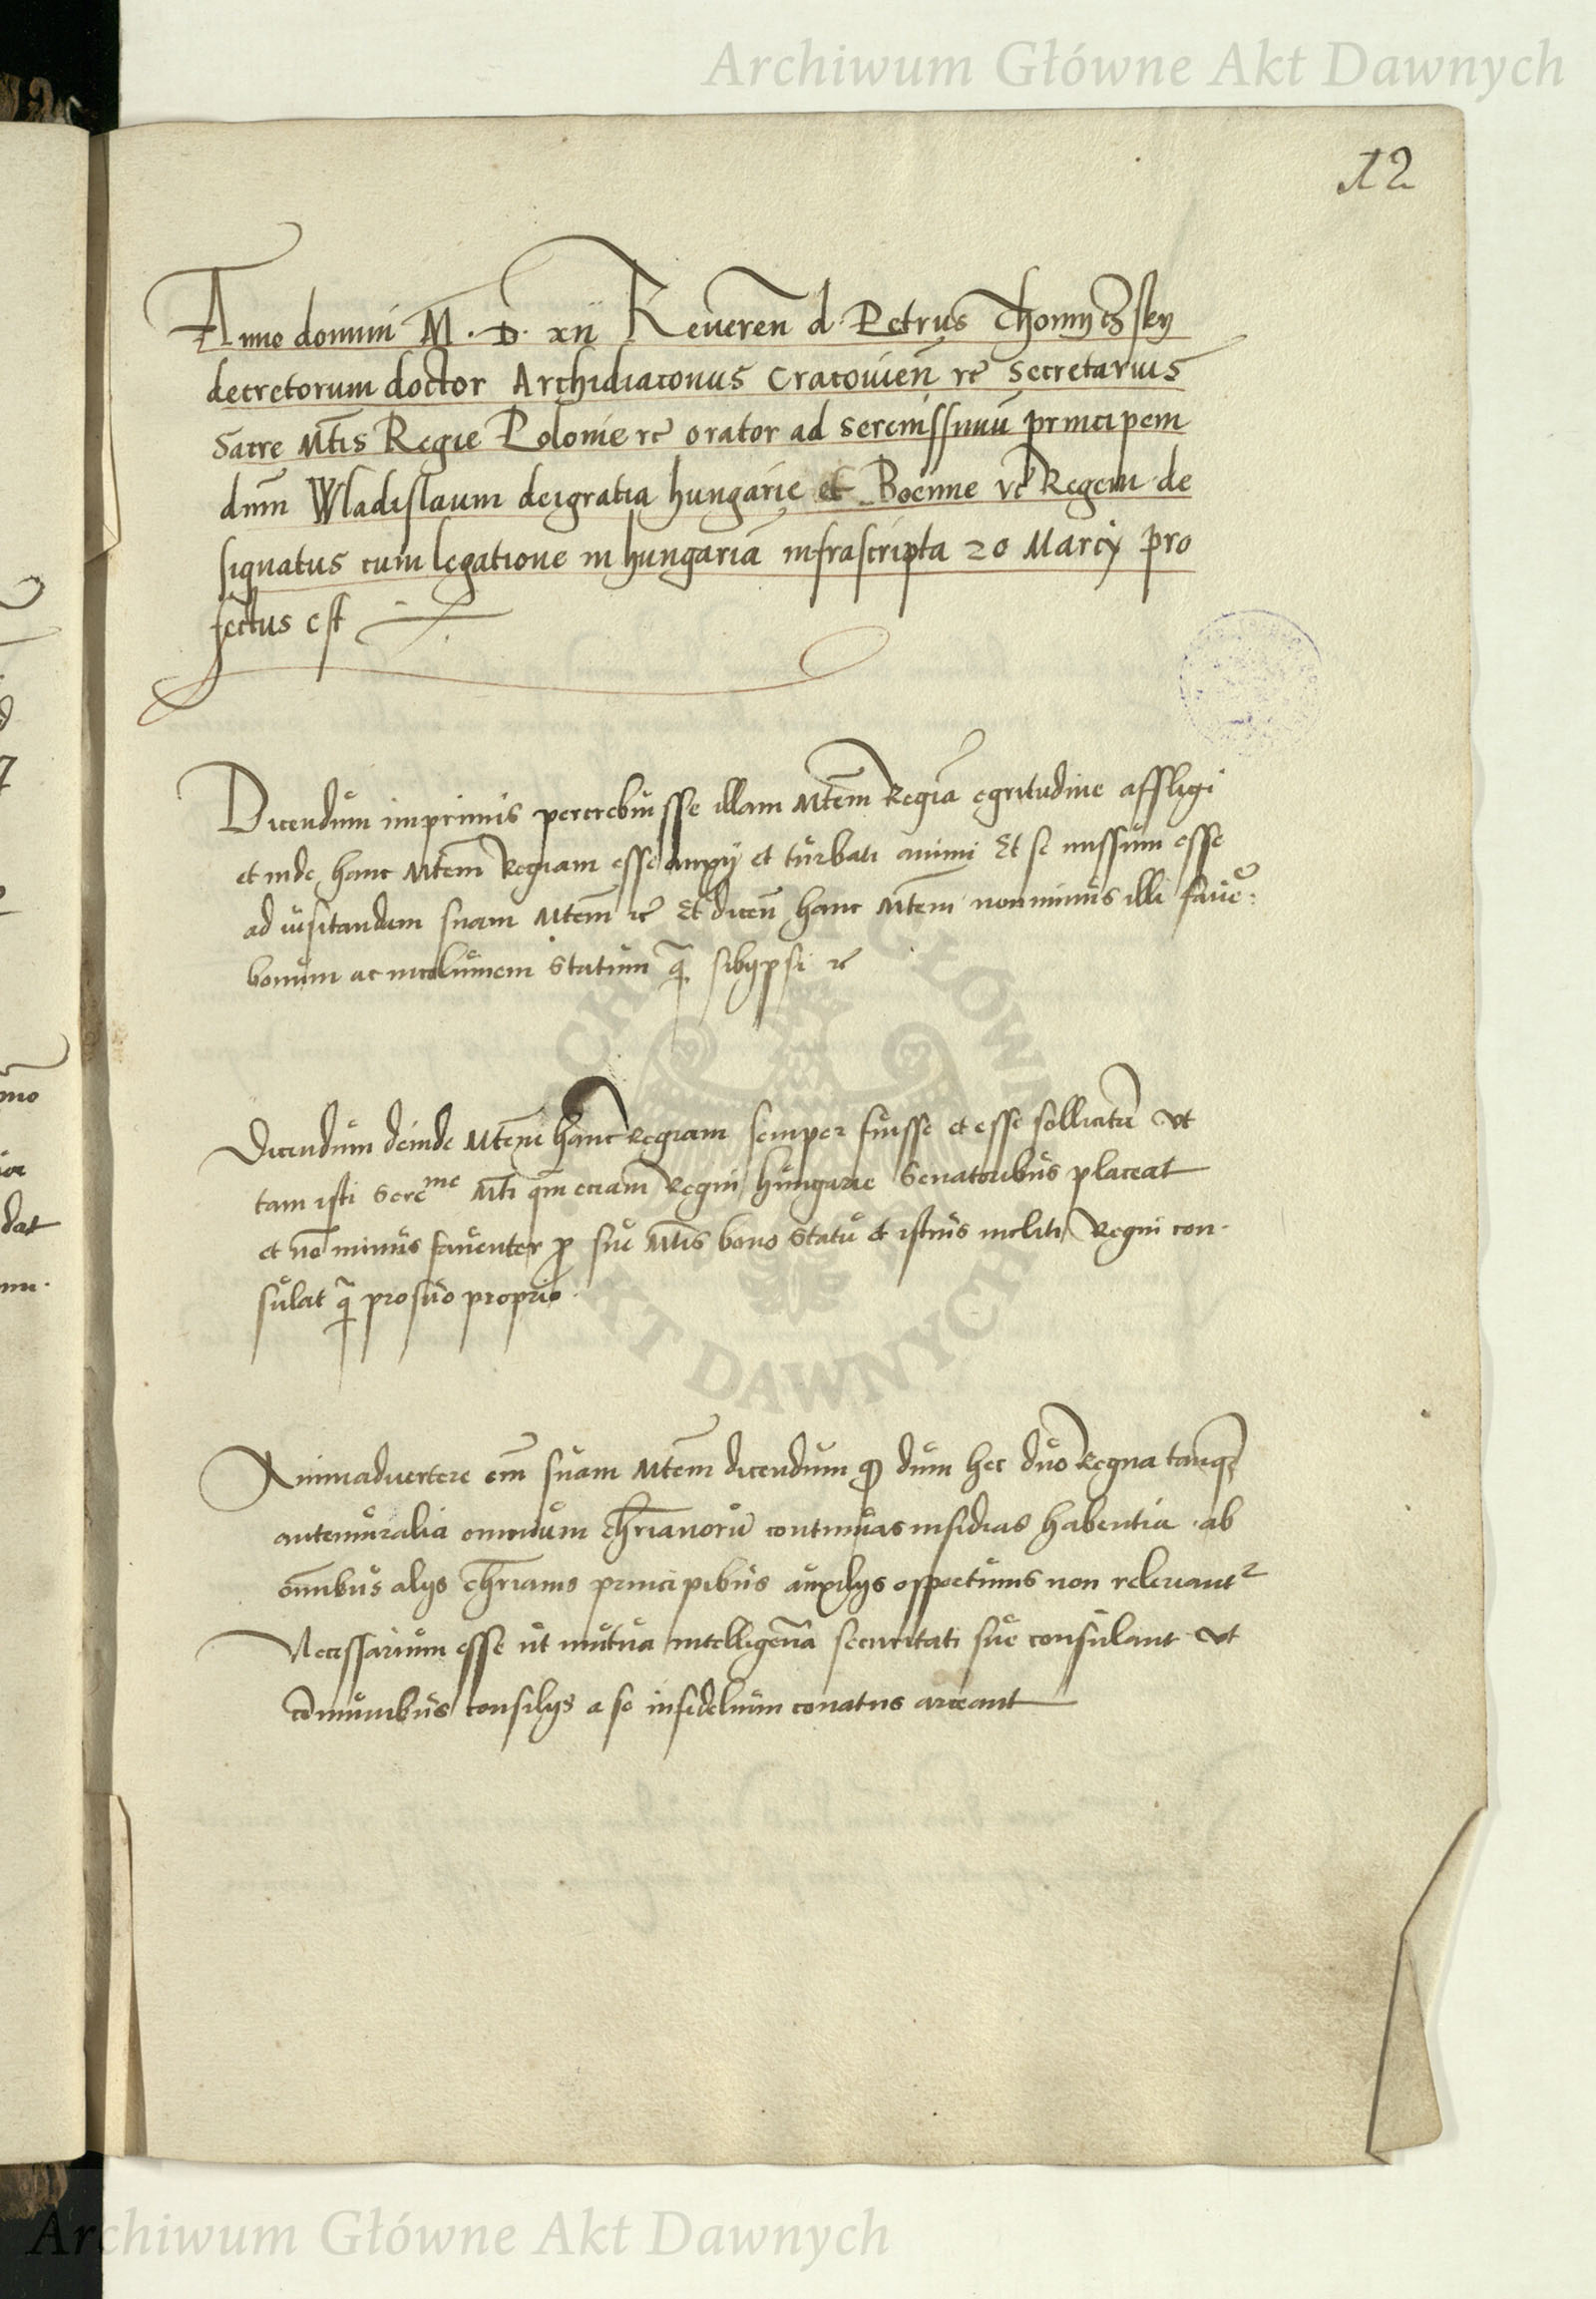 Archiwum Główne Akt Dawnych
12
Anno domini M . D . xii Reueren̄ d. Petrus Thomyczsky
decretorum doctor Archidiaconus Cracouien̄ rc̄ Secretarius
Sacre Mt̄is Regie Polonie rc̄ orator ad serenissimū principem
dnm̄ Wladislaum deigratia hungarie et Boemie rc̄ Regem de
signatus cum legatione in hungariā infrascripta 20 Marcy pro
fectus est
Dicendum imprimis percrebuisse illam Mt̄em Regiā egritudine affligi
et inde hanc Mt̄em Regiam esse anxy et turbati animi Et se missum esse
ad visitandum suam Mt̄em rc̄ Et dicen̄ hanc Mt̄em non minus illi faue:
bonum ac incolumem statum q̄ sibiypsi rc
Dicendum deinde Mt̄em hanc regiam semper fuisse et esse sollicitā vt
tam isti Sere^me Mt̄i qm̄ eciam Regni hungarie Senatoribus placeat
et nō minus fauenter ꝓ sue Mt̄is bono statu et istius incliti Regni con-
sulat q̄ pro suo proprio.
Animaduertere em̄ suam Mt̄em dicendum ꝙ dum hec duo Regna tanq̄
antemuralia omnium chr̄ianorū continuas insidias habentia . ab
om̄ibus alys chr̄ianis principibus auxilys opportunis non releuant²
Necessarium esse ut mutua intelligen̄a securitati sue consulant vt
cōmunibus consilys a se infidelium conatus arceant
ARCHIWUM GŁÓWNE AKT DAWNYCH
Archiwum Główne Akt Dawnych